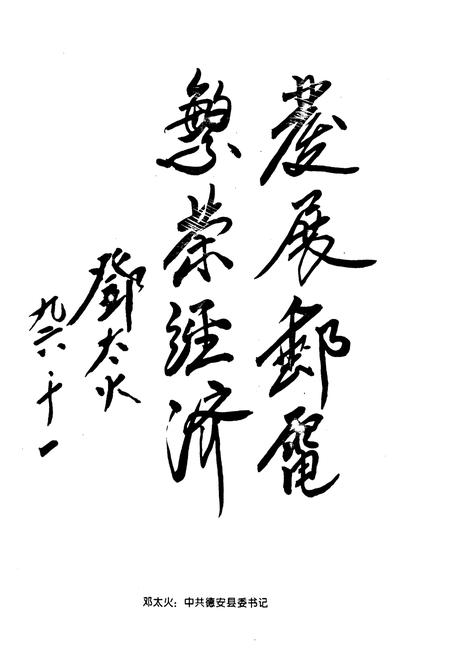 發展郵電
繁荣經济
鄧太火
九六·十一
邓太火：中共德安县委书记